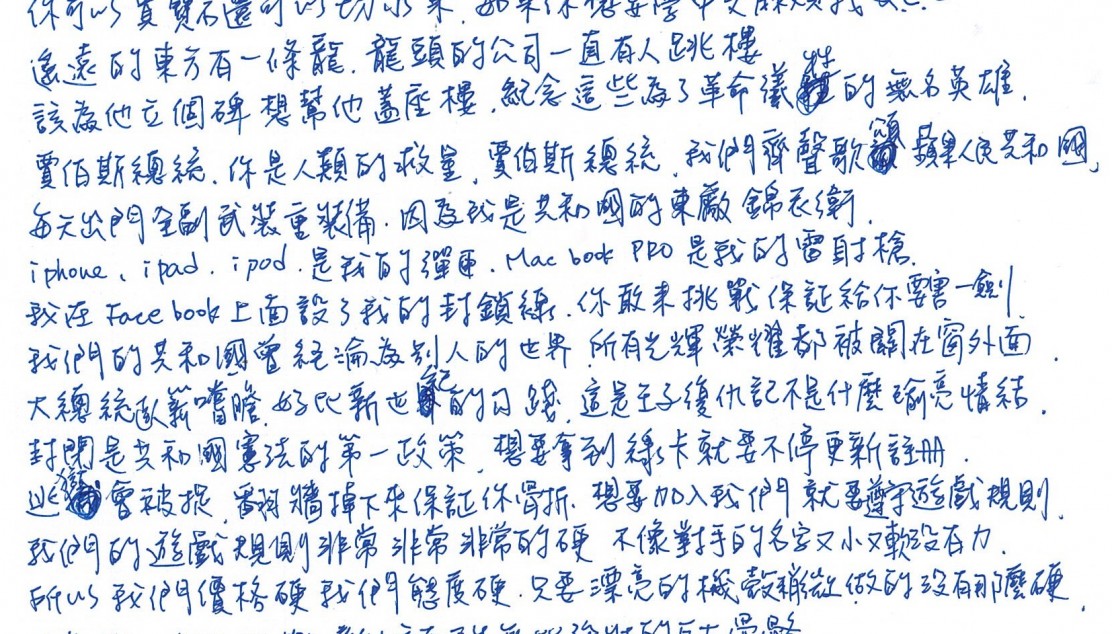 你可以買寶石還可以切水果.如果你想要學中文
遙遠的東方有一條龍.龍頭的公司一直有人跳樓
該為他立個碑想幫他蓋座樓.紀念這些為了革命犧牲的無名英雄.
賈伯斯總統.你是人類的救星,賈伯斯總統.我們齊聲歌頌蘋果人民共和國,
每天出門全副武裝重裝備.因為我是共和國的東廠錦衣衛.
iphone、ipad.ipod.是我的彈匣.Mac book PRO是我的雷射槍.
我在Face book上面設了我的封鎖線.你敢來挑戰保証給你要害一劍
我們的共和國曾經淪為別人的世界.所有光輝榮耀都被關在窗外面.
大總統臥薪嚐膽.好比新世紀的勾踐.這是王子復仇記不是什麼瑜亮情結.
封閉是共和國憲法的第一政策.想要拿到綠卡就要不停更新註冊.
逃獄會被捉.牆掉下來保証你骨折.想要加入我們就要遵守遊戲規則.
我們的遊戲規則非常非常非常的硬 不像對手的名字又小又軟沒有力.
所以我們價格硬我們態度硬.只要漂亮的機殼稍微做的沒有那麼硬.